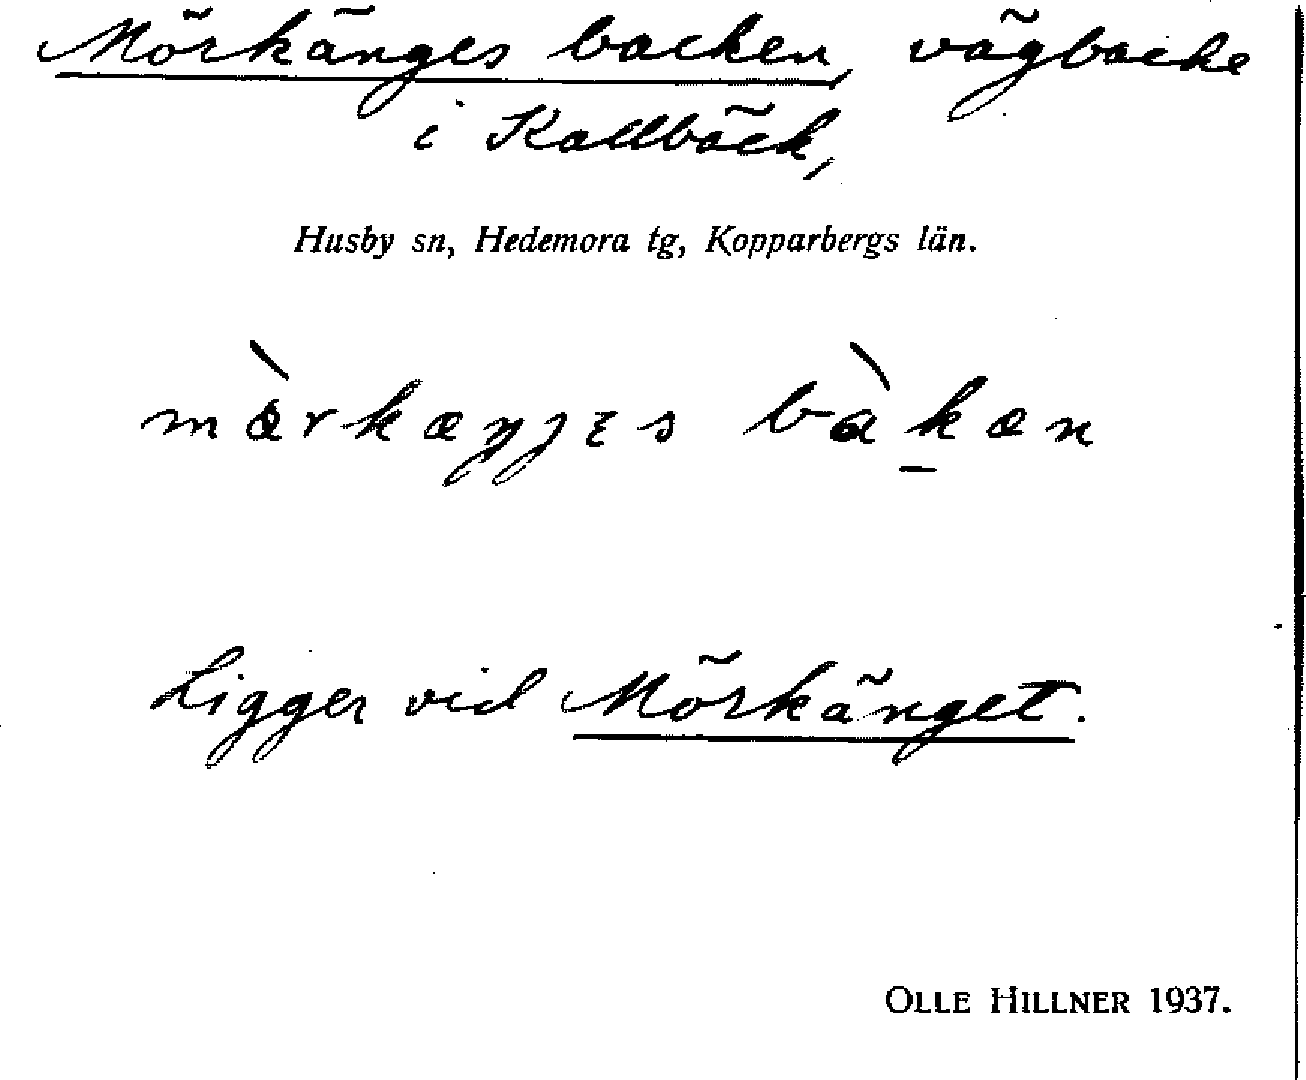 Mörkänges backen, vägbacke
i Kallbäck,
Husby sn, Hedemora tg, Kopparbergs län.
mæ̀rkæŋɟɛs bàk̲æn
Ligger vid Mörkänget.
OLLE HILLNER 1937.